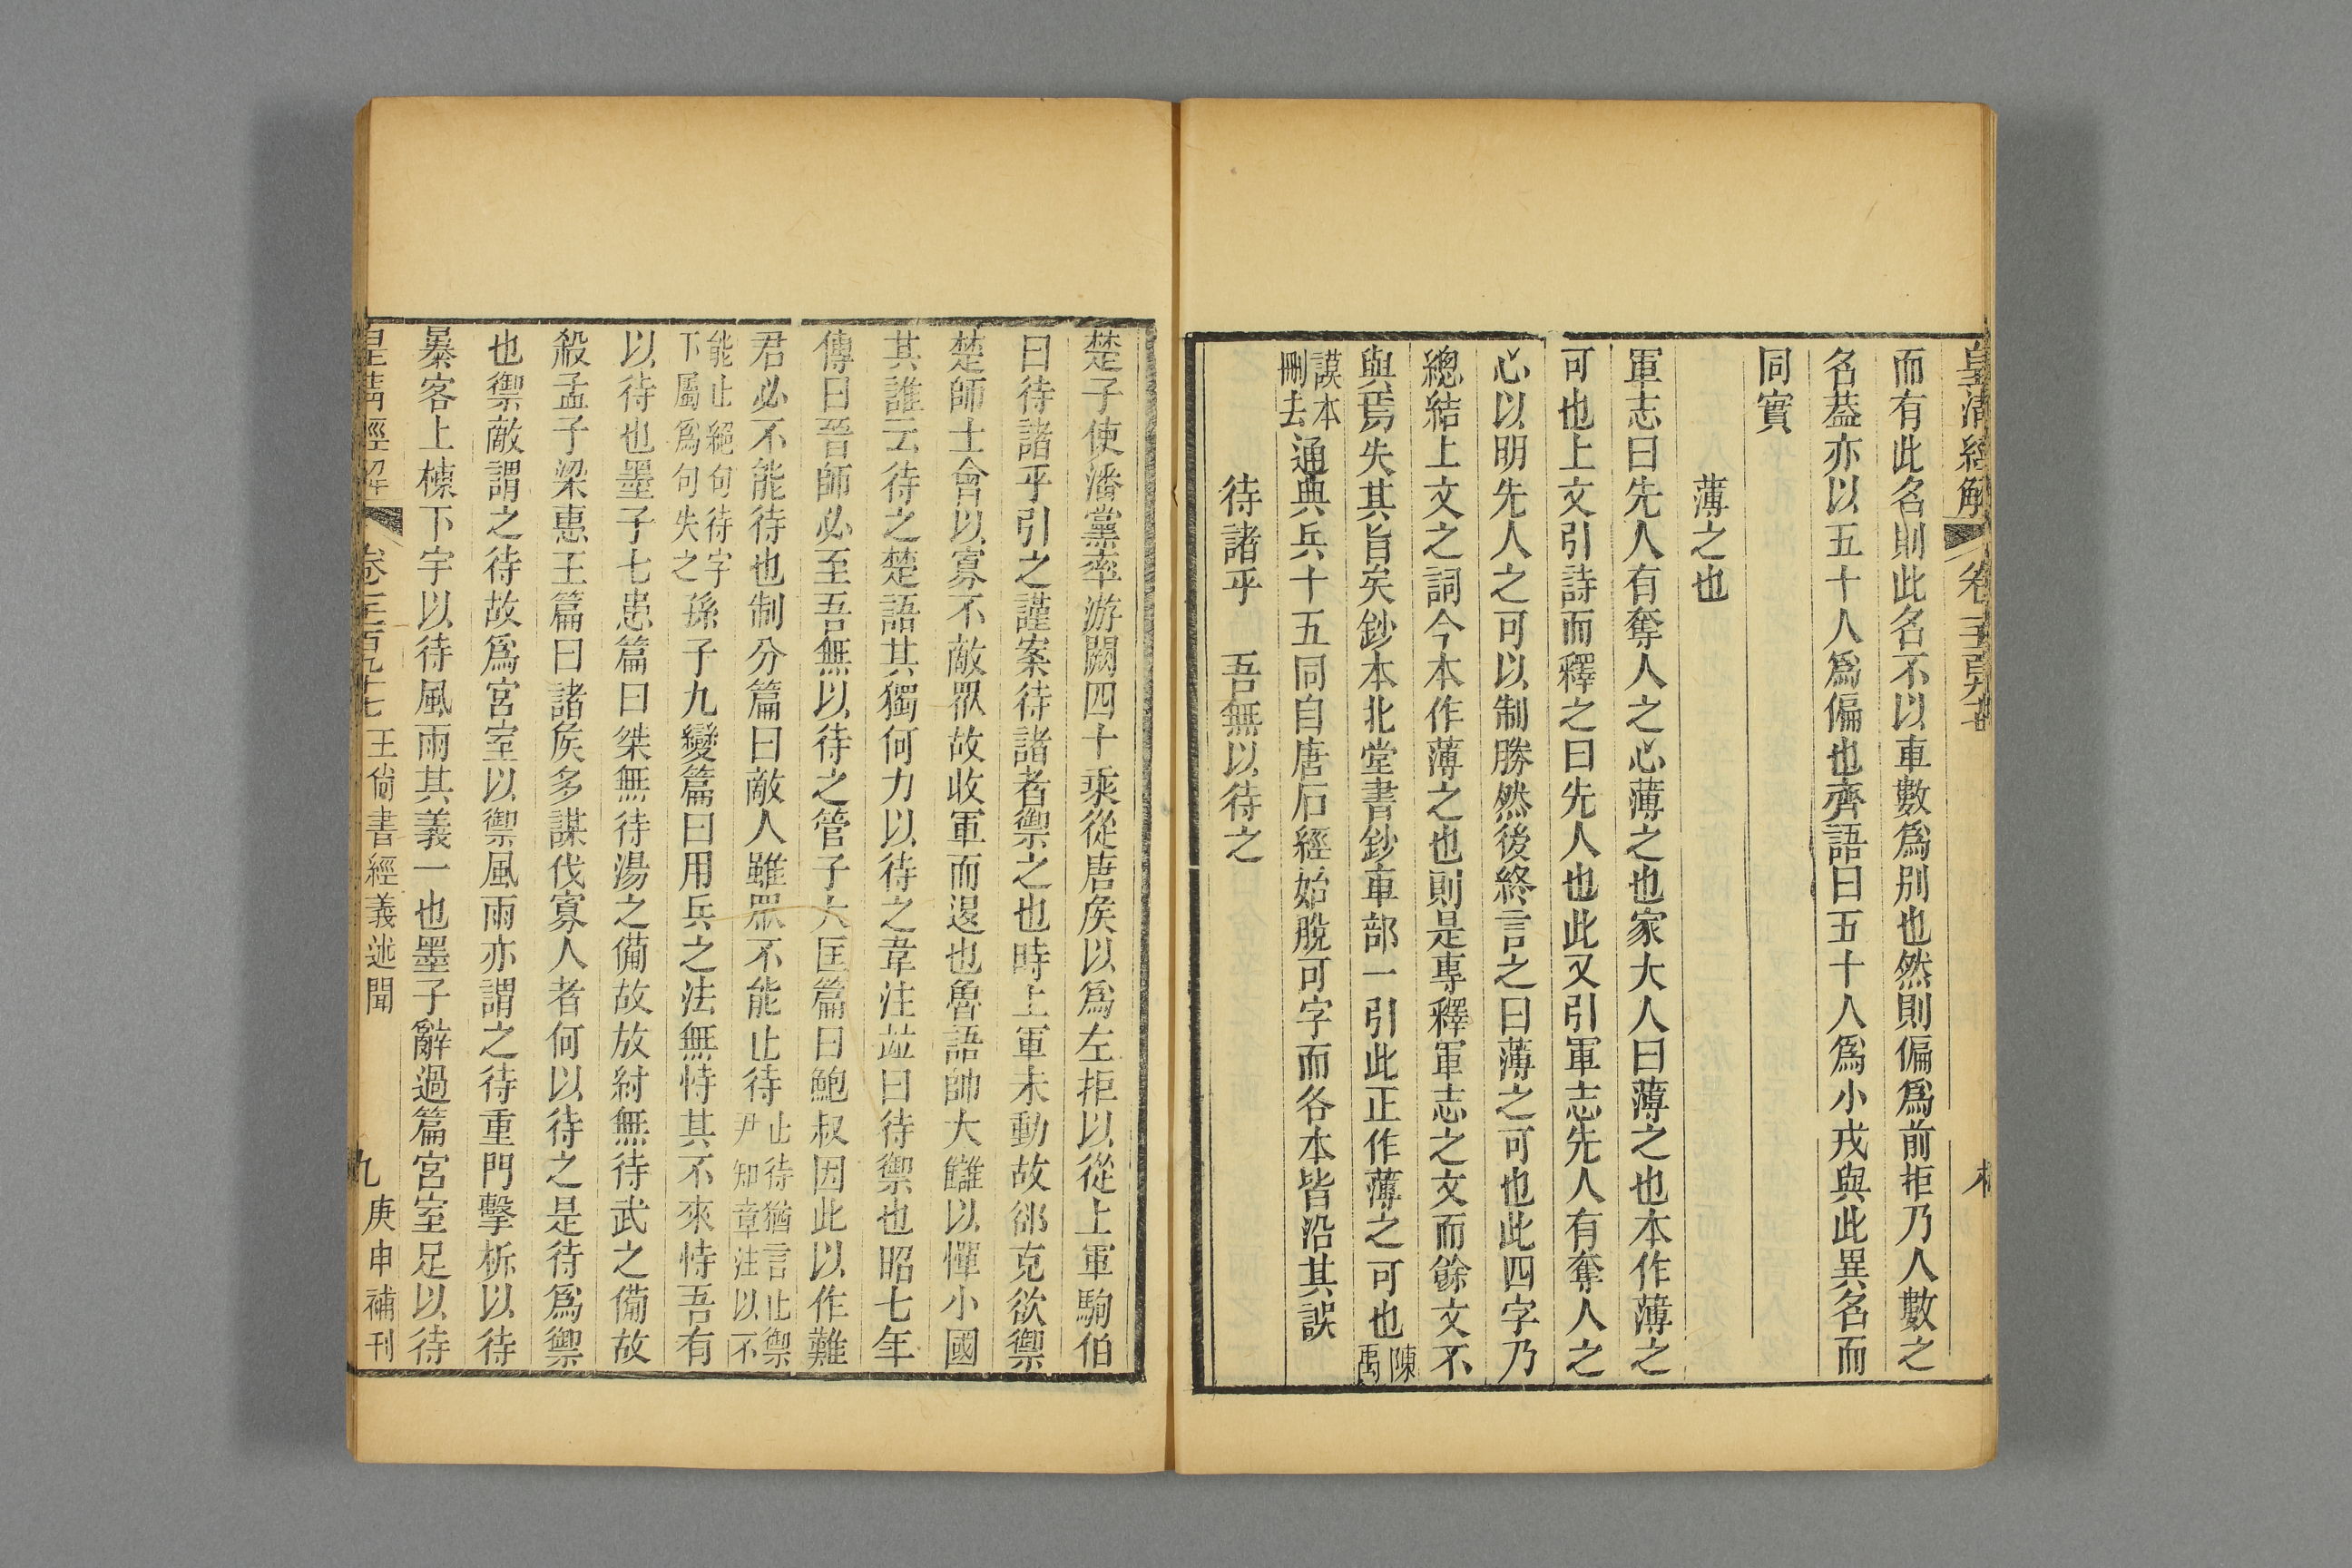 皇清經解
而有此名則此名不以車數爲别也然則偏爲前拒乃人數之
名葢亦以五十人爲偏也齊語曰五十人爲小戎與此異名而
同實
薄之也
軍志曰先人有奪人之心薄之也家大人曰薄之也本作薄之
可也上文引詩而釋之曰先人也此又引軍志先人有奪人之
心以明先人之可以制勝然後終言之曰薄之可也此四字乃
總結上文之詞今本作薄之也則是專釋軍志之文而餘文不
與焉失其旨矣鈔本北堂書鈔車部一引此正作薄之可也陳禹
謨本刪去通典兵十五同自唐石經始脫可字而各本皆沿其誤
待諸乎 吾無以待之
楚子使潘黨率游闕四十乘從唐矦以爲左拒以從上軍駒伯
曰待諸乎引之謹案待諸者禦之也時上軍未動故郤克欲禦
楚師士會以寡不敵眾故收軍而退也魯語帥大讎以憚小國
其誰云待之楚語其獨何力以待之韋注竝曰待禦也昭七年
傳曰晉師必至吾無以待之管子大匡篇曰鮑叔因此以作難
君必不能待也制分篇曰敵人雖眾不能止待止待猶言止禦尹知章注以不
能止絕句待字下屬爲句失之孫子九變篇曰用兵之法無恃其不來恃吾有
以待也墨子七患篇曰桀無待湯之備故放紂無待武之備故
殺孟子梁惠王篇曰諸矦多謀伐寡人者何以待之是待爲禦
也禦敵謂之待故爲宮室以禦風雨亦謂之待重門擊柝以待
暴客上棟下宇以待風雨其義一也墨子辭過篇宮室足以待
皇清經解 卷 王尙書經義述聞 九 庚申補刊